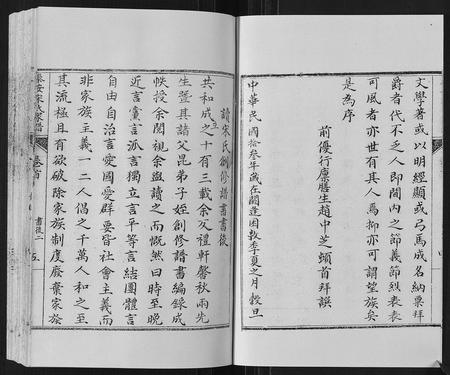 文學著或以明經顯或弓馬成名納粟拜
爵者代不乏人即閫内之節義節烈表表
可風者亦世有其人焉抑亦可謂望族矣
是為序
前優行廩膳生趙中芝頓首拜譔
中華民國拾叁年歲在閼逢困敦季夏之月榖旦
讀宋氏創修譜書書後
共和成立之十有三載余友禮軒馨秋兩先
生暨其諸父昆弟子姪創修譜書編錄成
帙投余閱視余盥讀之而慨然曰時至晚
近言黨言派言獨立言平等言結團體言
自由自治言愛國愛群要皆社會主義而
非家族主義一二人倡之千萬人和之至
其流極且有欲破除家族制度廢棄家族
宋氏家譜
卷首
書後二
五